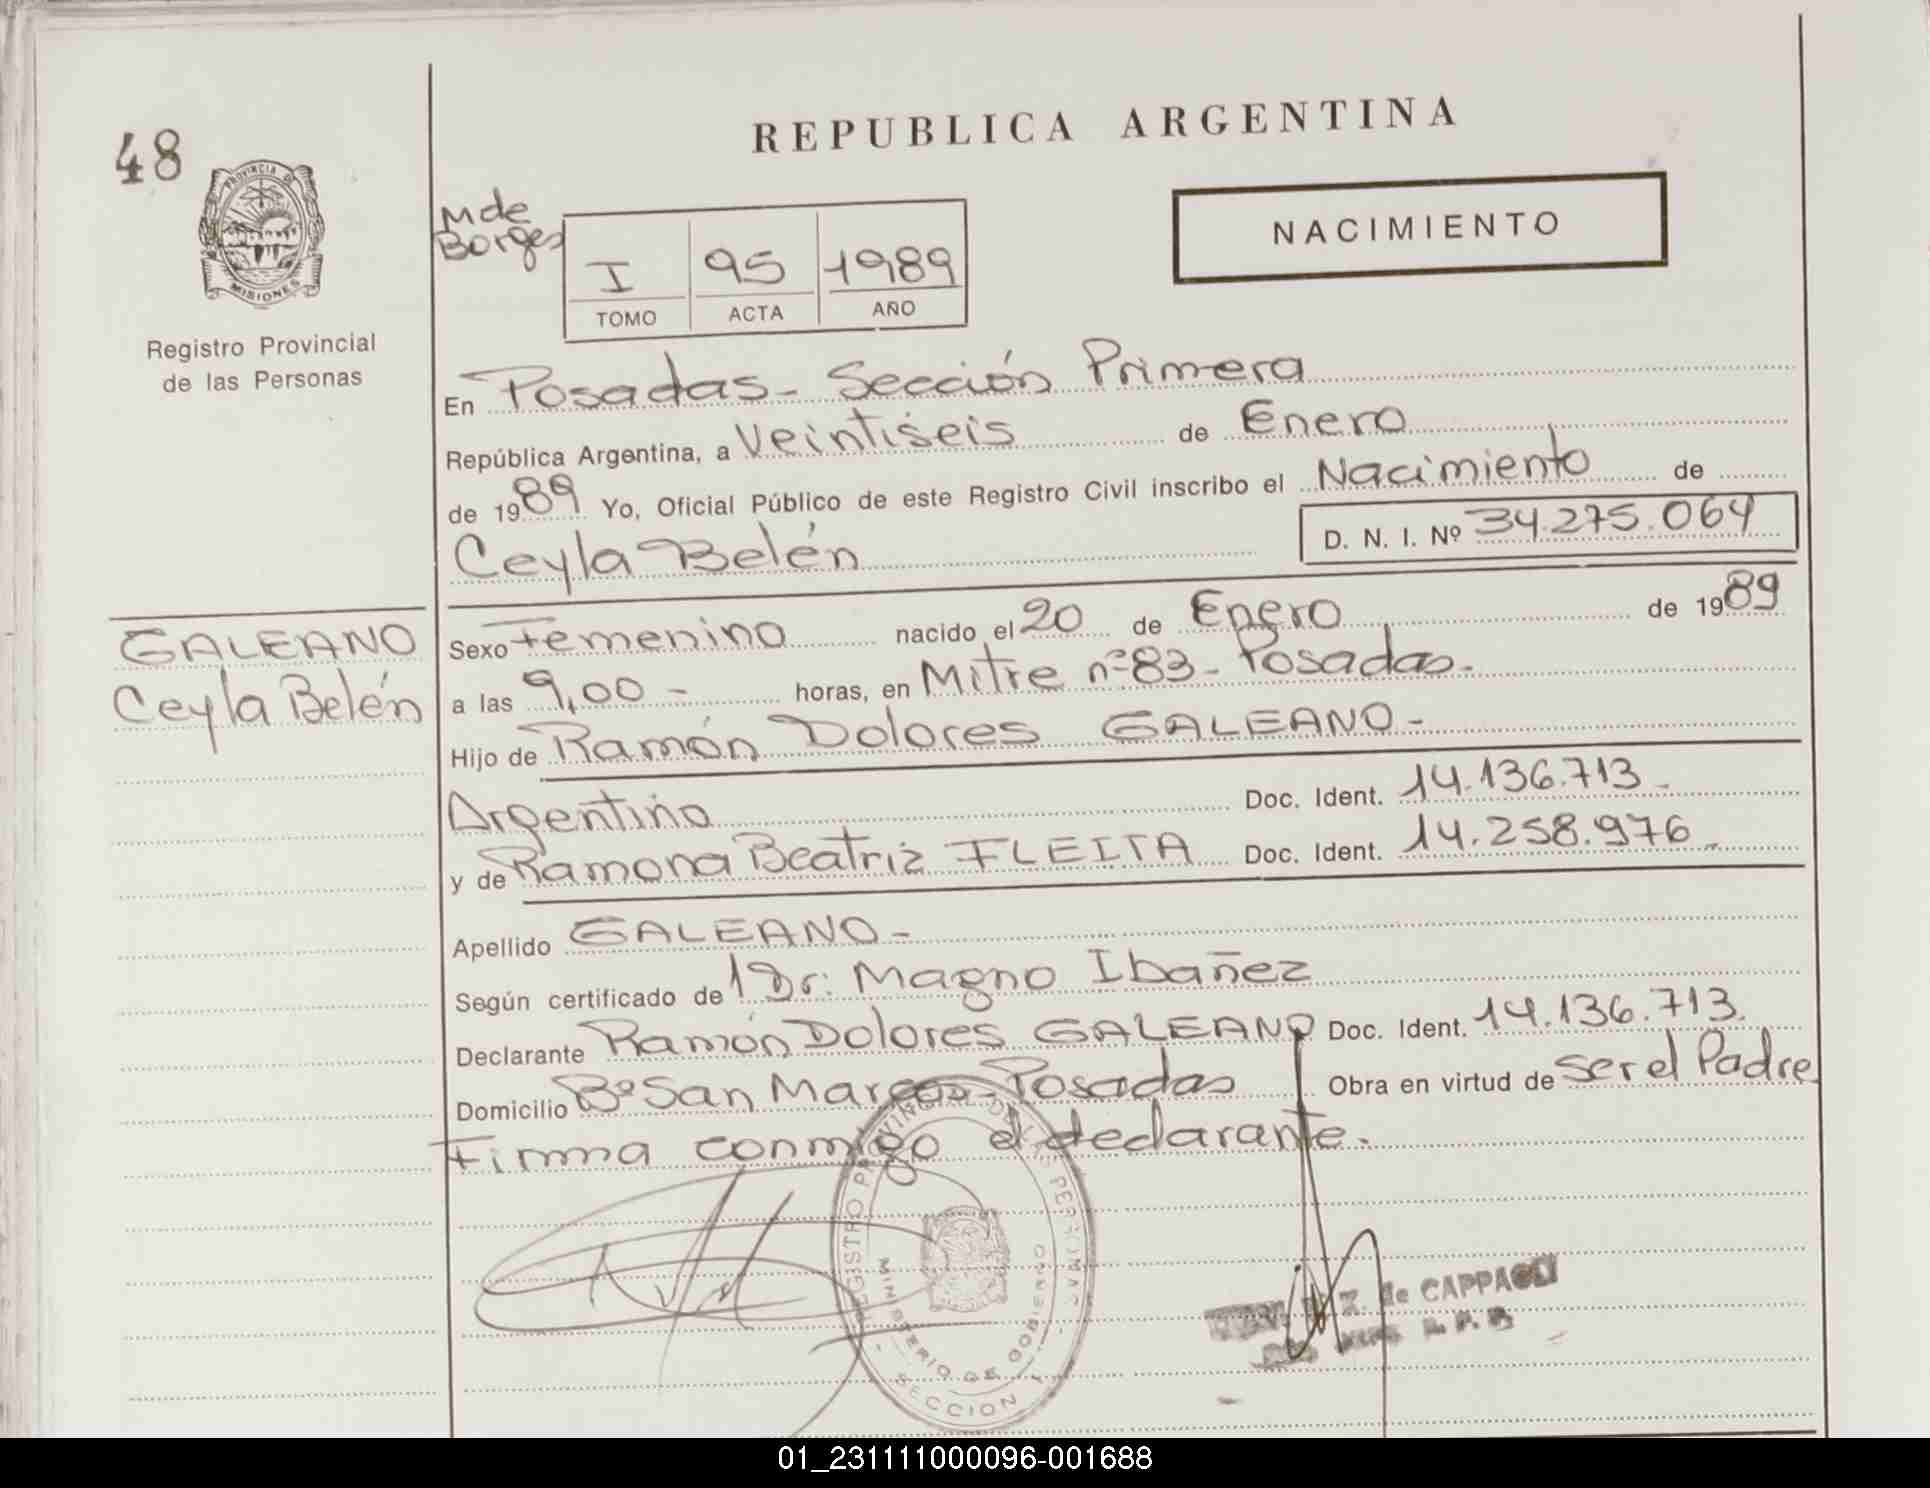 48
REPUBLICA ARGENTINA
PROVINCIA DE
MISIONES
Registro Provincial
de las Personas
M de
Borges
NACIMIENTO
I 95 1989
TOMO ACTA AÑO
En Posadas - Sección Primera
República Argentina, a Veintiseis de Enero
de 1989 Yo, Oficial Público de este Registro Civil inscribo el Nacimiento de
Ceyla Belén D. N. I. Nº 34.275.064
GALEANO
Ceyla Belén
Sexo Femenino nacido el 20 de Enero de 1989
a las 9,00 - horas, en Mitre nº 83 - Posadas.
Hijo de Ramón Dolores GALEANO -
Argentino Doc. Ident. 14.136.713
y de Ramona Beatriz FLEITA Doc. Ident. 14.258.976
Apellido GALEANO -
Según certificado de 1 Dr: Magno Ibañez
Declarante Ramón Dolores GALEANO Doc. Ident. 14.136.713
Domicilio Bº San Marcos - Posadas Obra en virtud de ser el Padre
Firma conmigo el declarante.
REGISTRO PROVINCIAL DE LAS PERSONAS
MINISTERIO DE GOBIERNO
SECCION 1
Z. de CAPPA
01_231111000096-001688